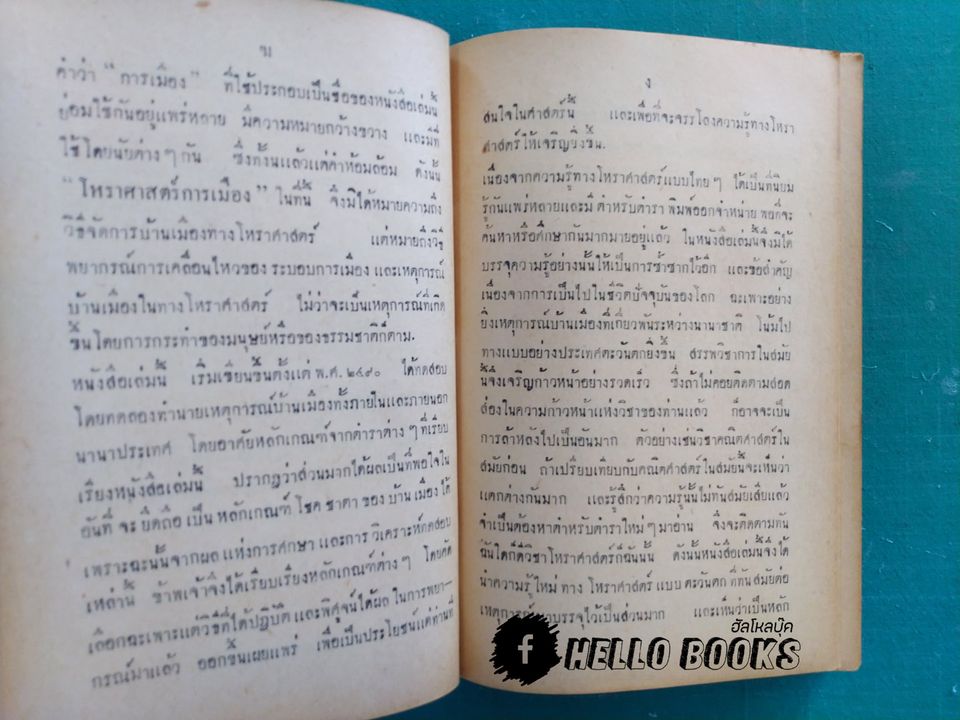 ฆ
คำว่า “ การเมือง ” ที่ใช้ประกอบเป็นชื่อของหนังสือเล่มนี้
ย่อมใช้กันอยู่แพร่หลาย มีความหมายกว้างขวาง และมีที่
ใช้โดยนัยต่าง ๆ กัน ซึ่งทั้งนแล้วแต่คำห้อมล้อม ดังนั้น
“ โหราศาสตร์การเมือง ” ในที่นี้ จึงมิได้หมายความถึง
วิธีจัดการบ้านเมืองทางโหราศาสตร์ แต่หมายถึงวิธี
พยากรณ์การเคลื่อนไหวของ ระบอบการเมือง และเหตุการณ์
บ้านเมืองในทางโหราศาสตร์ ไม่ว่าจะเป็นเหตุการณ์ที่เกิด
ขึ้นโดยการกระทำของมนุษย์หรือของธรรมชาติก็ตาม.
หนังสือเล่มนี้ เริ่มเขียนขึ้นตั้งแต่ พ.ศ. ๒๔๙๐ ได้ทดสอบ
โดยทดลองทำนายเหตุการณ์บ้านเมืองทั้งภายในและภายนอก
นานาประเทศ โดยอาศัยหลักเกณฑ์จากตำราต่าง ๆ ที่เรียบ
เรียงหนังสือเล่มนี้ ปรากฏว่าส่วนมากได้ผลเป็นที่พอใจใน
อันที่ จะ ยึดถือ เป็น หลักเกณฑ์ โชค ชาตา ของ บ้าน เมือง ได้
เพราะฉะนั้นจากผล แห่งการศึกษา และการ วิเคราะห์ทดสอบ
เหล่านี้ ข้าพเจ้าจึงได้เรียบเรียงหลักเกณฑ์ต่างๆ โดยคัด
เลือกฉะเพาะแต่วิธีที่ได้ปฏิบัติ และพิศูจน์ได้ผล ในการพยา–
กรณ์มาแล้ว ออกขึ้นเผยแพร่ เพื่อเป็นประโยชน์แต่ท่านที่
ง
สนใจในศาสตร์นี้ และเพื่อที่จะจรรโลงความรู้ทางโหรา
ศาสตร์ให้เจริญยิ่งขึ้น.
เนื่องจากความรู้ทางโหราศาสตร์แบบไทย ๆ ได้เป็นที่นิยม
รู้กันแพร่หลายและมี ตำหรับตำรา พิมพ์ออกจำหน่าย พอที่จะ
ค้นหาหรือศึกษากันมากมายอยู่แล้ว ในหนังสือเล่มนี้จึงมิได้
บรรจุความรู้อย่างนั้นให้เป็นการซ้ำซากไว้อีก และข้อสำคัญ
เนื่องจากการเป็นไปในชีวิตปัจจุบันของโลก ฉะเพาะอย่าง
ยิ่งเหตุการณ์บ้านเมืองที่เกี่ยวพันระหว่างนานาชาติ โน้มไป
ทางแบบอย่างประเทศตะวันตกยิ่งขึ้น สรรพวิชาการในสมัย
นี้จึงเจริญก้าวหน้าอย่างรวดเร็ว ซึ่งถ้าไม่คอยติดตามสอด
ส่องในความก้าวหน้าแห่งวิชาของท่านแล้ว ก็อาจจะเป็น
การล้าหลังไปเป็นอันมาก ตัวอย่างเช่นวิชาคณิตศาสตร์ใน
สมัยก่อน ถ้าเปรียบเทียบกับคณิตศาสตร์ในสมัยนี้จะเห็นว่า
แตกต่างกันมาก และรู้สึกว่าความรู้นั้นไม่ทันสมัยเสียแล้ว
จำเป็นต้องหาตำหรับตำราใหม่ ๆ มาอ่าน จึงจะติดตามทัน
ฉันใดก็ดีวิชาโหราศาสตร์ก็ฉันนั้น ดังนั้นหนังสือเล่มนี้จึงได้
นำความรู้ใหม่ ทาง โหราศาสตร์ แบบ ตะวันตก ที่ทันสมัยต่อ
เหตุการณ์ บรรจุไว้เป็นส่วนมาก และเห็นว่าเป็นหลัก
ฮัลโหลบุ๊ค
f HELLO BOOKS